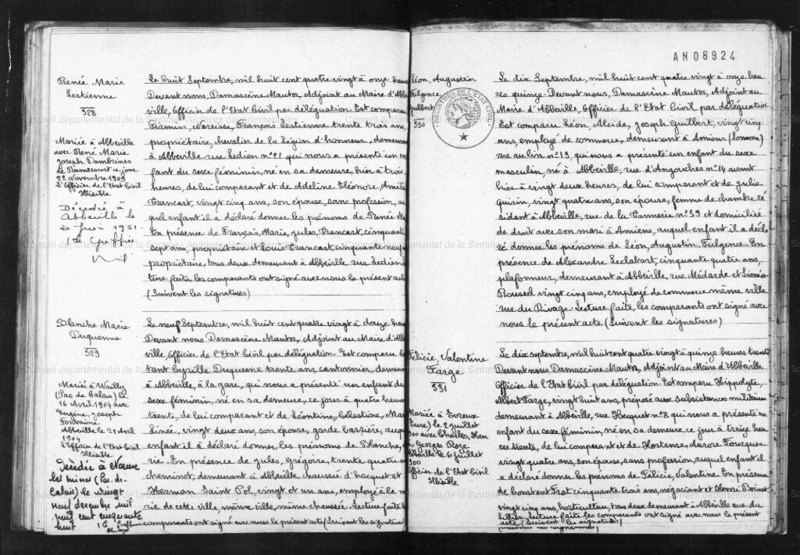 Renée Marie
Lestienne
328
Mariée à Abbeville
au René Marie
Joseph Dambrines
le Ramecourt le jour
22 novembre 1909
L'officier de l'Etat Civil
Illisible
Décédée à
Abbeville le
20 Juin 1951
Le Greffier
Le huit Septembre, mil huit cent quatre vingt à onze heures
Devant nous, Damascène Mautor, Adjoint au Maire d'Abbe
ville, Officier de l'Etat Civil par délégation Est comparu
Firmin, Narcisse, François Lestienne trente trois ans,
propriétaire, chevalier de la Légion d'honneur, demeurant
à Abbeville, rue Ledien n°21 qui nous a présenté un en
fant du sexe féminin, né en sa demeure, hier à trois
heures, de lui comparant et de Adeline Eléonore,
Francart, vingt cinq ans, son épouse, sans profession, au
quel enfant il a déclaré donner les prénoms de Renée
En présence de François, Marie, Jules, Francart, cinquante
sept ans, propriétaire et Louis Francart, cinquante neuf
propriétaire, tous deux demeurant à Abbeville, rue Ledien
ture faite, les comparants ont signé avec nous le présent acte
(Suivent les signatures)
Blanche Marie
Duquenne
329
Mariée à Wailly
(Pas de Calais) le
16 Avril 1904 avec
Eugène, Joseph
Fontaine
Abbeville le 21 Avril
1904
L'officier de l'Etat Civil
Illisible
Décédée à Noeux
les mines (Pas de
Calais) le vingt
neuf décembre mil
neuf cent cinquante
Le neuf Septembre, mil huit cent quatre vingt à douze heures
Devant nous Damascène Mautor, Adjoint au Maire d'Abbe
ville, Officier de l'Etat Civil par délégation Est comparu
Cyrille Duquenne trente ans, cantonnier, demeurant
à Abbeville, à la gare, qui nous a présenté un enfant du
sexe féminin, né en sa demeure, ce jour à quatre heures
trente, de lui comparant et de Léontine, Célestine,
vingt deux ans, son épouse, garde barrière, auquel
enfant il a déclaré donner les prénoms de Blanche, Ma
rie. En présence de Jules, Grégoire, trente quatre
cheminot, demeurant à Abbeville, chaussée d'Hocquet et
Herman Saint Pol, vingt et un ans, employé à la mai
rie de cette ville, même ville, même chaussée. Lecture faite les
comparants ont signé avec nous le présent acte (Suivent les signatures)
AN08924
Léon, Augustin
Fulgence
Guilbert
330
Le dix Septembre, mil huit cent quatre vingt à onze heu
res quinze. Devant nous, Damascène Mautor, Adjoint au
Maire d'Abbeville, Officier de l'Etat Civil par délégation
Est comparu Léon, Alcide, Joseph Guilbert, vingt cinq
ans, employé de commerce, demeurant à Amiens (Somme)
n°19, qui nous a présenté un enfant du sexe
masculin, né à Abbeville, rue d'Angouches n°14 avant
hier à vingt deux heures, de lui comparant et de Julie
vingt quatre ans, son épouse, femme de chambre ré
sidant à Abbeville, rue de la Tannerie n°39 et domiciliée
de droit avec son mari à Amiens, auquel enfant il a décla
ré donner les prénoms de Léon, Augustin, Fulgence. En
présence de Alexandre Leclabart, cinquante quatre ans,
plafonneur, demeurant à Abbeville, rue Médarde et Siméon
Roussel vingt cinq ans, employé de commerce même ville
rue du Rivage. Lecture faite, les comparants ont signé avec
nous le présent acte (Suivent les signatures)
Félicie, Valentine
Farge
331
Mariée à Evreux
(Eure) le 2 juillet
Abbeville le 6 juillet
Officier de l'Etat Civil
Illisible
Le dix septembre, mil huit cent quatre vingt à quinze heures trente
Devant nous Damascène Mautor, Adjoint au Maire d'Abbeville
Officier de l'Etat Civil par délégation Est comparu Hippolyte,
Albert Farge, vingt huit ans, préposé aux subsistances militaires
demeurant à Abbeville, rue Hecquet n°8 qui nous a présenté un
enfant du sexe féminin, né en sa demeure ce jour à treize heu
res trente, de lui comparant et de Hortense,
vingt quatre ans, son épouse, sans profession, auquel enfant il
a déclaré donner les prénoms de Félicie, Valentine. En présence
de Constant Fost cinquante trois ans, négociant et Henri
vingt cinq ans, horticulteur, tous deux demeurant à Abbeville rue du
Lecture faite, les comparants ont signé avec nous le présent
acte (Suivent les signatures)